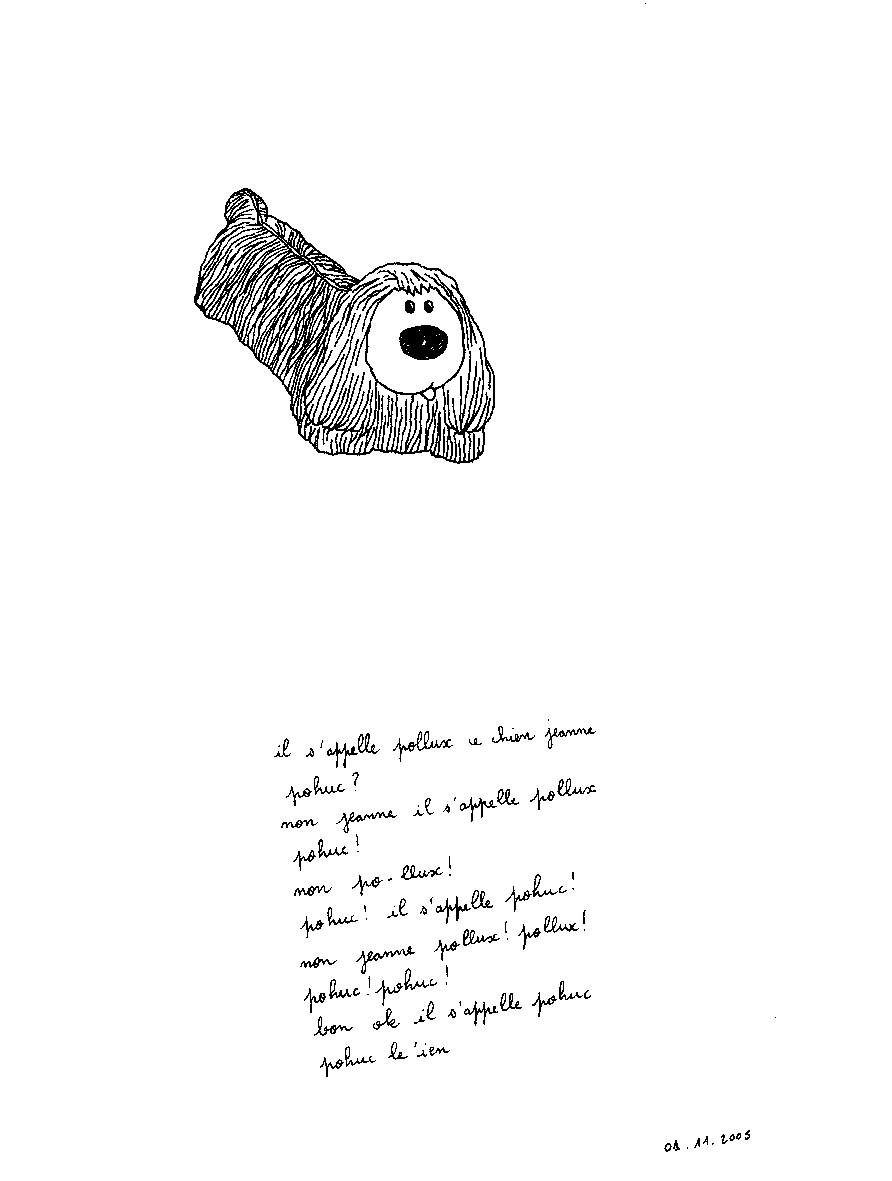 il s'appelle pollux ce chien jeanne
pohuc ?
non jeanne il s'appelle pollux
pohuc !
non po-llux !
pohuc ! il s'appelle pohuc !
non jeanne pollux ! pollux !
pohuc ! pohuc !
bon ok il s'appelle pohuc
pohuc le 'ien
.11.2005